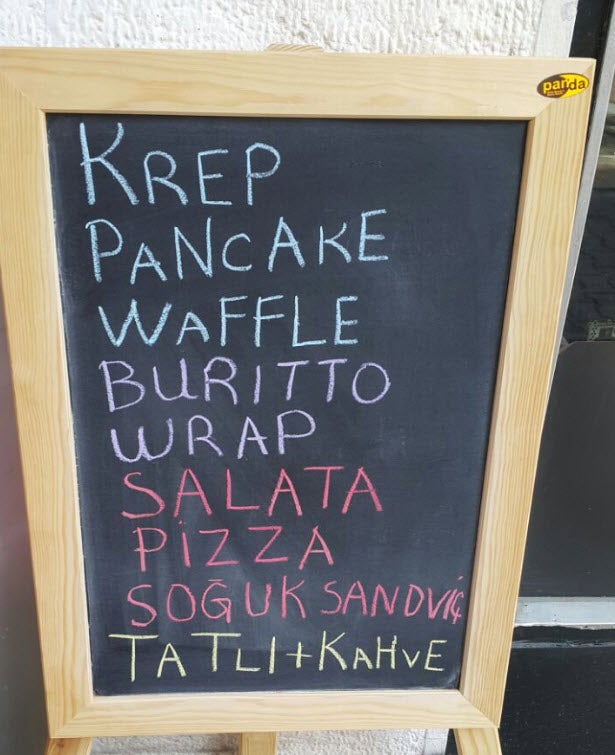 panda
KREP
PANCAKE
WAFFLE
BURITTO
WRAP
SALATA
PİZZA
SOĞUK SANDVİÇ
TATLI+KAHVE